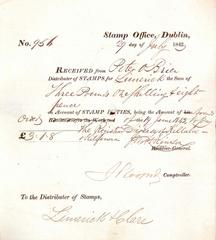 Stamp Office, Dublin,
No. 956
29 day of July 1842
RECEIVED from Peter O'Brien
Distributor of STAMPS, for Limerick the Sum of
Three Pounds One Shilling & eight
pence
on Account of STAMP DUTIES, being the Amount of
Order of 14 June 1842
£3-1-8 The Registrar Diocese of Killaloe
Receiver-General.
Comptroller.
To the Distributor of Stamps,
Limerick & Clare